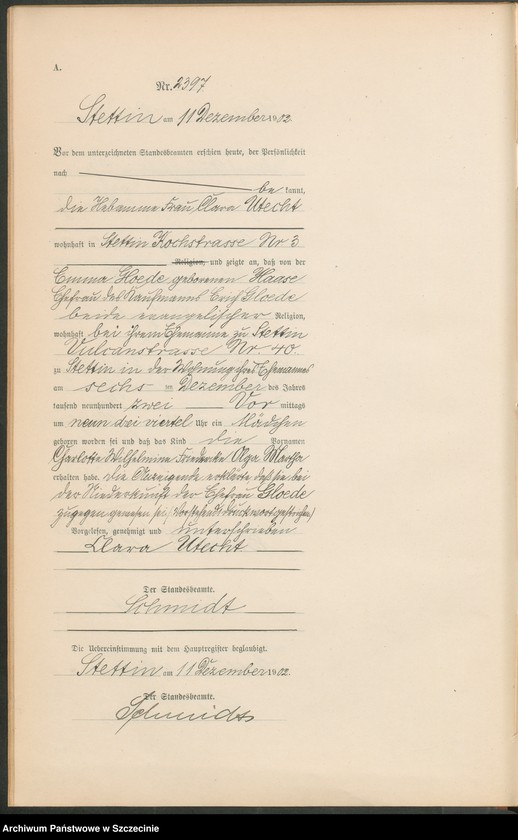 A.
Nr. 2397
Stettin am 11 Dezember 1902
Vor dem unterzeichneten Standesbeamten erschien heute, der Persönlichkeit
nach
be kannt,
die Hebamme Frau Clara Utecht
wohnhaft in Stettin Kochstrasse Nr 3
Religion, und zeigte an, daß von der
Emma Gloede geborenen Haase
Ehefrau des Kaufmanns Erich Gloede
beide evangelischer Religion,
wohnhaft bei ihrem Ehemanne zu Stettin
Vulcanstrasse Nr. 40.
zu Stettin in der Wohnung ihres Ehemannes
am sechs ten Dezember des Jahres
tausend neunhundert zwei Vor mittags
um neun drei viertel Uhr ein Mädchen
geboren worden sei und daß das Kind die Vornamen
Charlotte Wilhelmine Friederike Olga Martha
erhalten habe. Die Anzeigende erklärte daß sie bei
der Niederkunft der Ehefrau Gloede
zugegen gewesen sei. (Vorstehends Druckwort gestrichen)
Vorgelesen, genehmigt und unterschrieben
Clara Utecht
Der Standesbeamte.
Schmidt
Die Uebereinstimmung mit dem Hauptregister beglaubigt.
Stettin am 11 Dezember 1902
Der Standesbeamte.
Schmidt
Archiwum Państwowe w Szczecinie